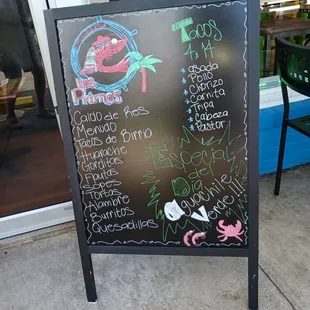 Los
Primos
Caldo de Res
Menudo
Tacos de Birria
Huarache
Gorditas
Flautas
Sopes
Tortas
Alambre
Burritos
Quesadillas
Tacos
4.14
Asada
Pollo
Chorizo
Carnita
Tripa
Cabeza
Pastor
Especial
del
Dia
Aguachile
Verde!!!